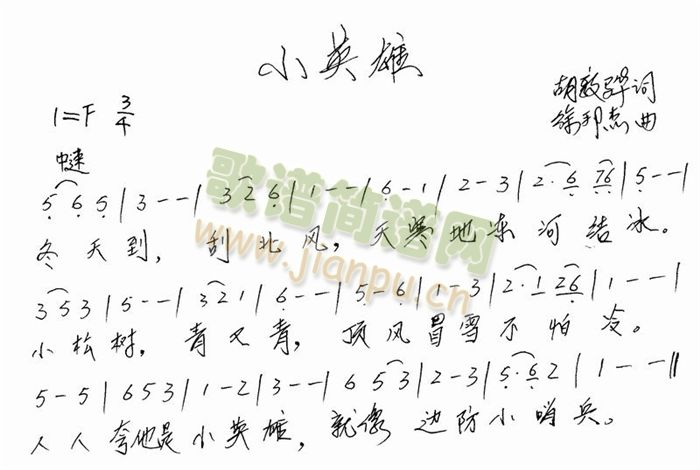 小英雄
胡敦骅词
1=F 3/4
徐邦杰曲
中速
5 6 5 | 3 - - | 3 2 6 | 1 - - | 6 - 1 | 2 - 3 | 2 · 6 76 | 5 - - |
冬天到，刮北风，天寒地冻河结冰。
3 5 3 | 5 - - | 3 2 1 | 6 - - | 5 - 6 | 1 - 3 | 2 · 1 26 | 1 - - |
小松树，青又青，顶风冒雪不怕冷。
5 - 5 | 6 5 3 | 1 - 2 | 3 - - | 6 5 3 | 2 - 3 | 5 · 6 2 | 1 - - ||
人人夸他是小英雄，就像边防小哨兵。
歌谱简谱网
www.jianpu.cn